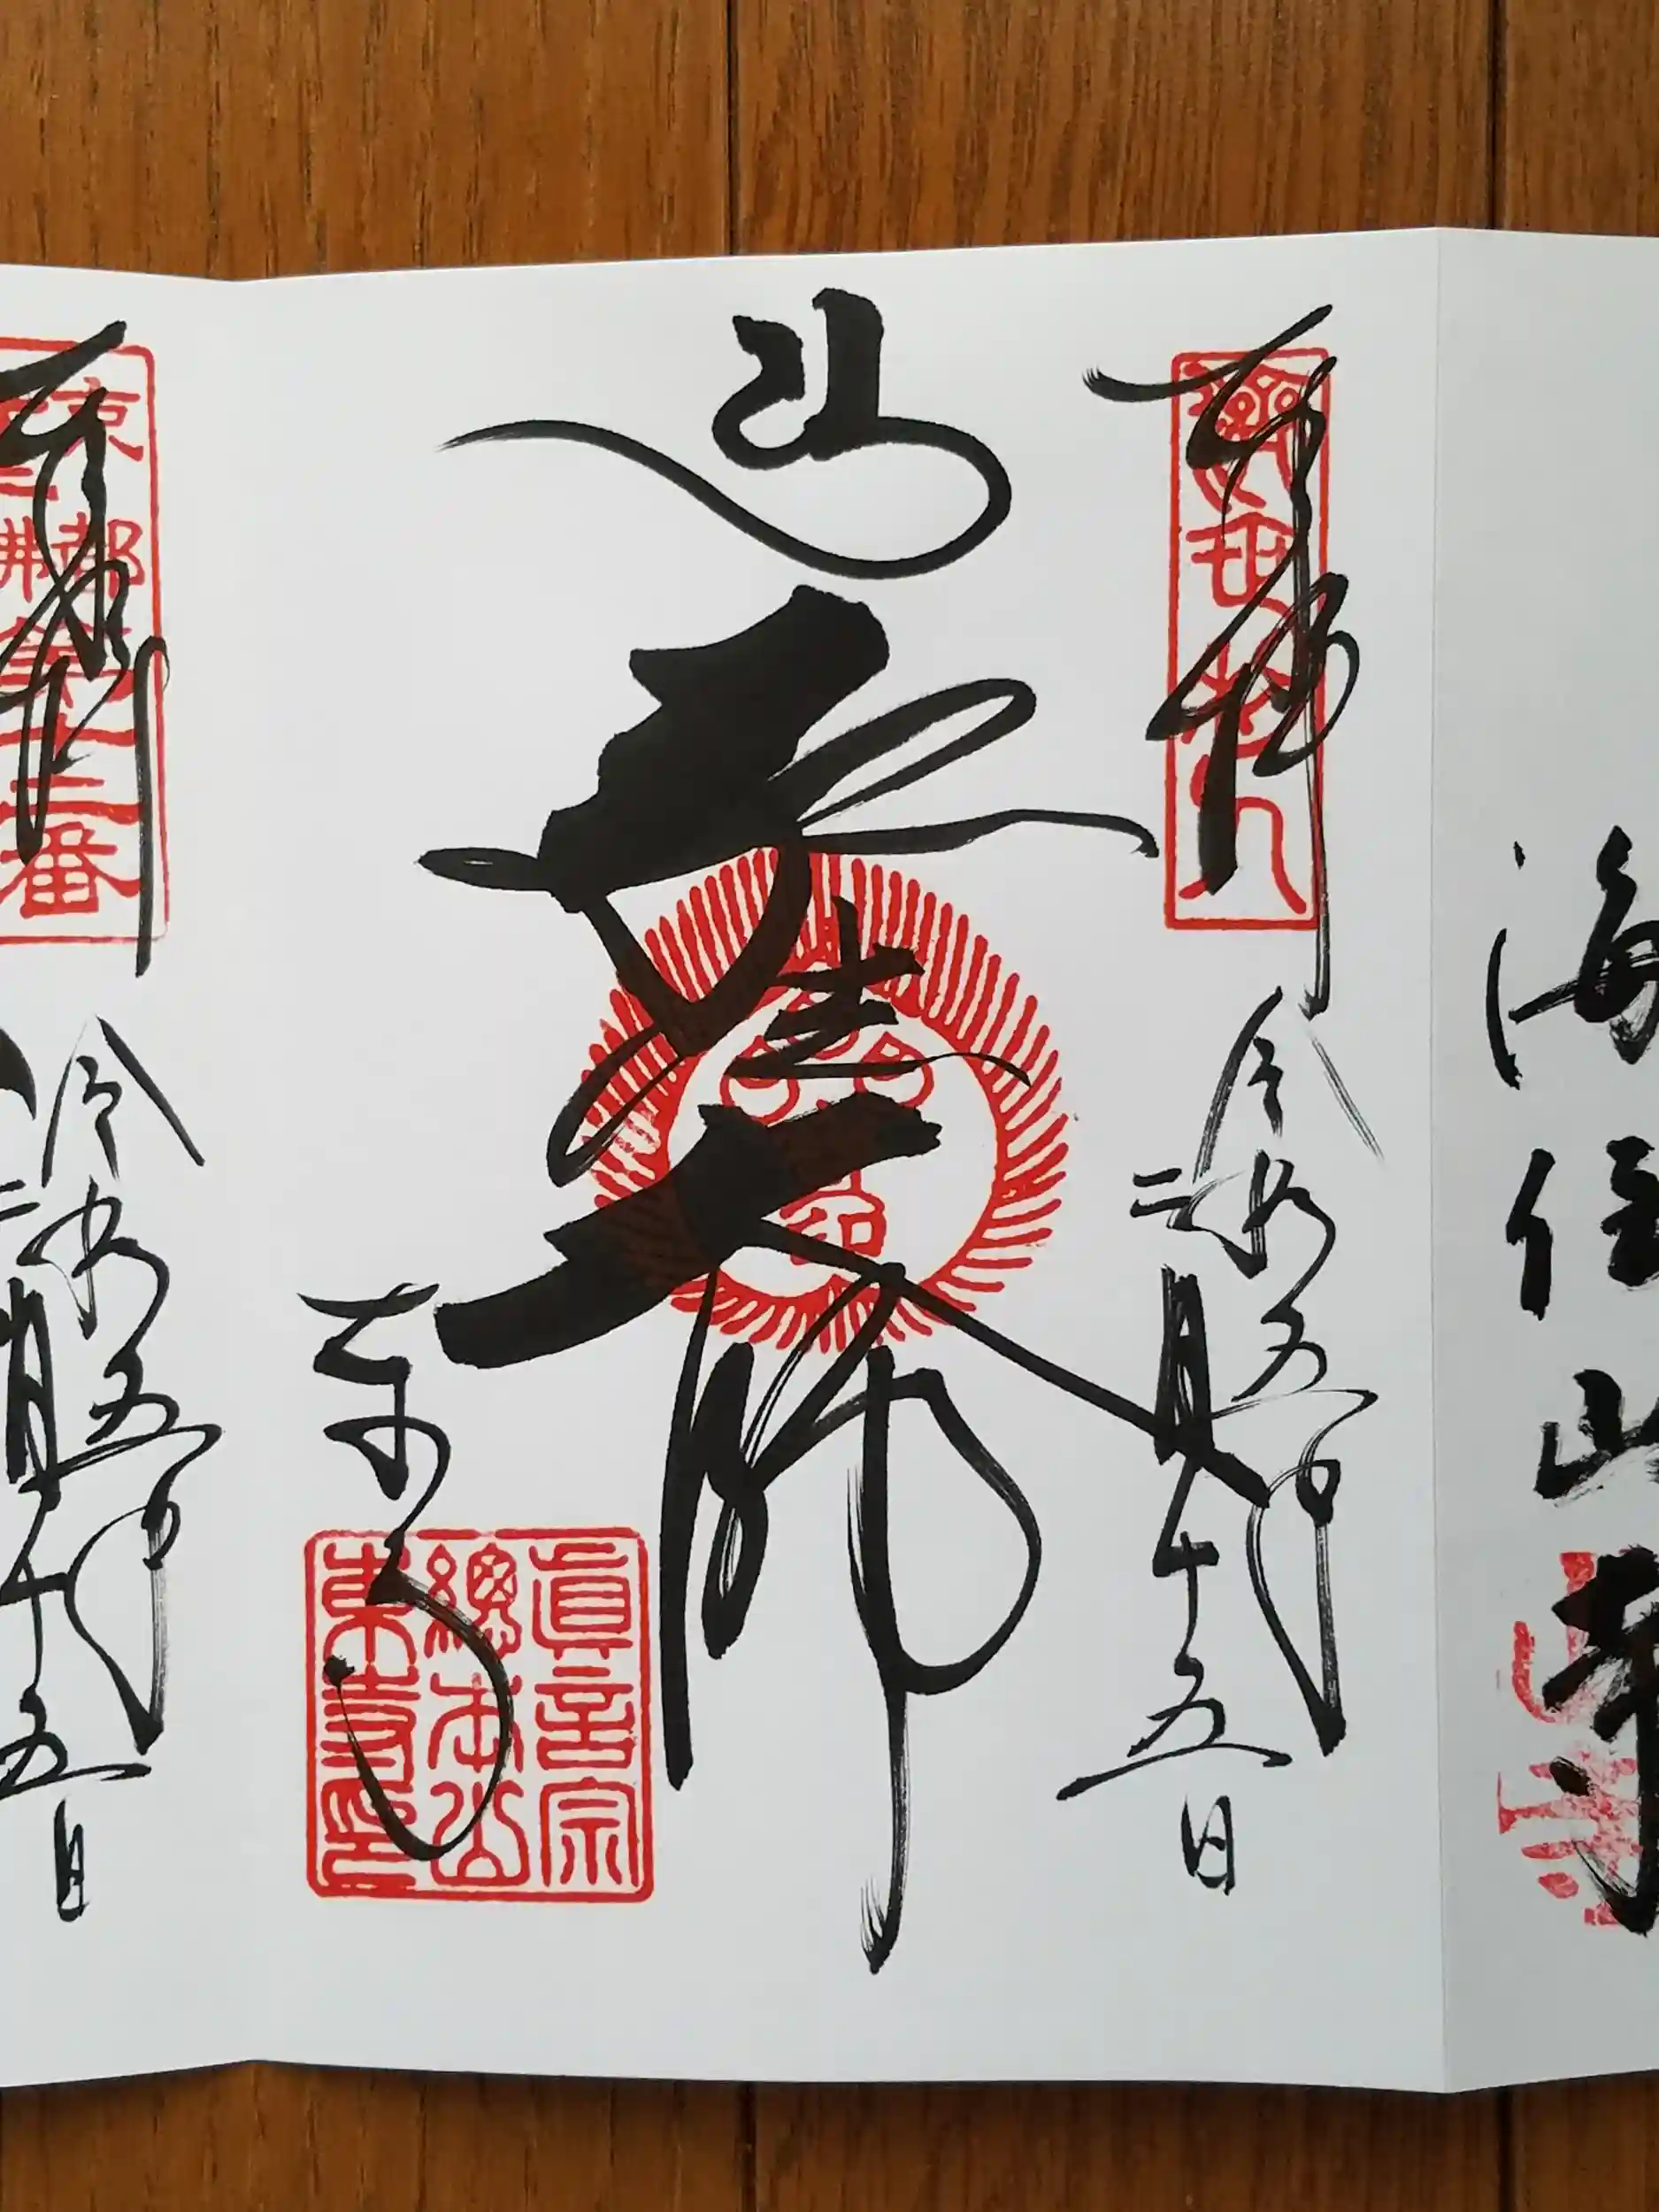 海住山寺
奉拝
令和五年
二月十五日
弘法大師
東寺
眞言宗
總本山
東寺印
奉拝
令和五年
二月十五日
京都
第十二番